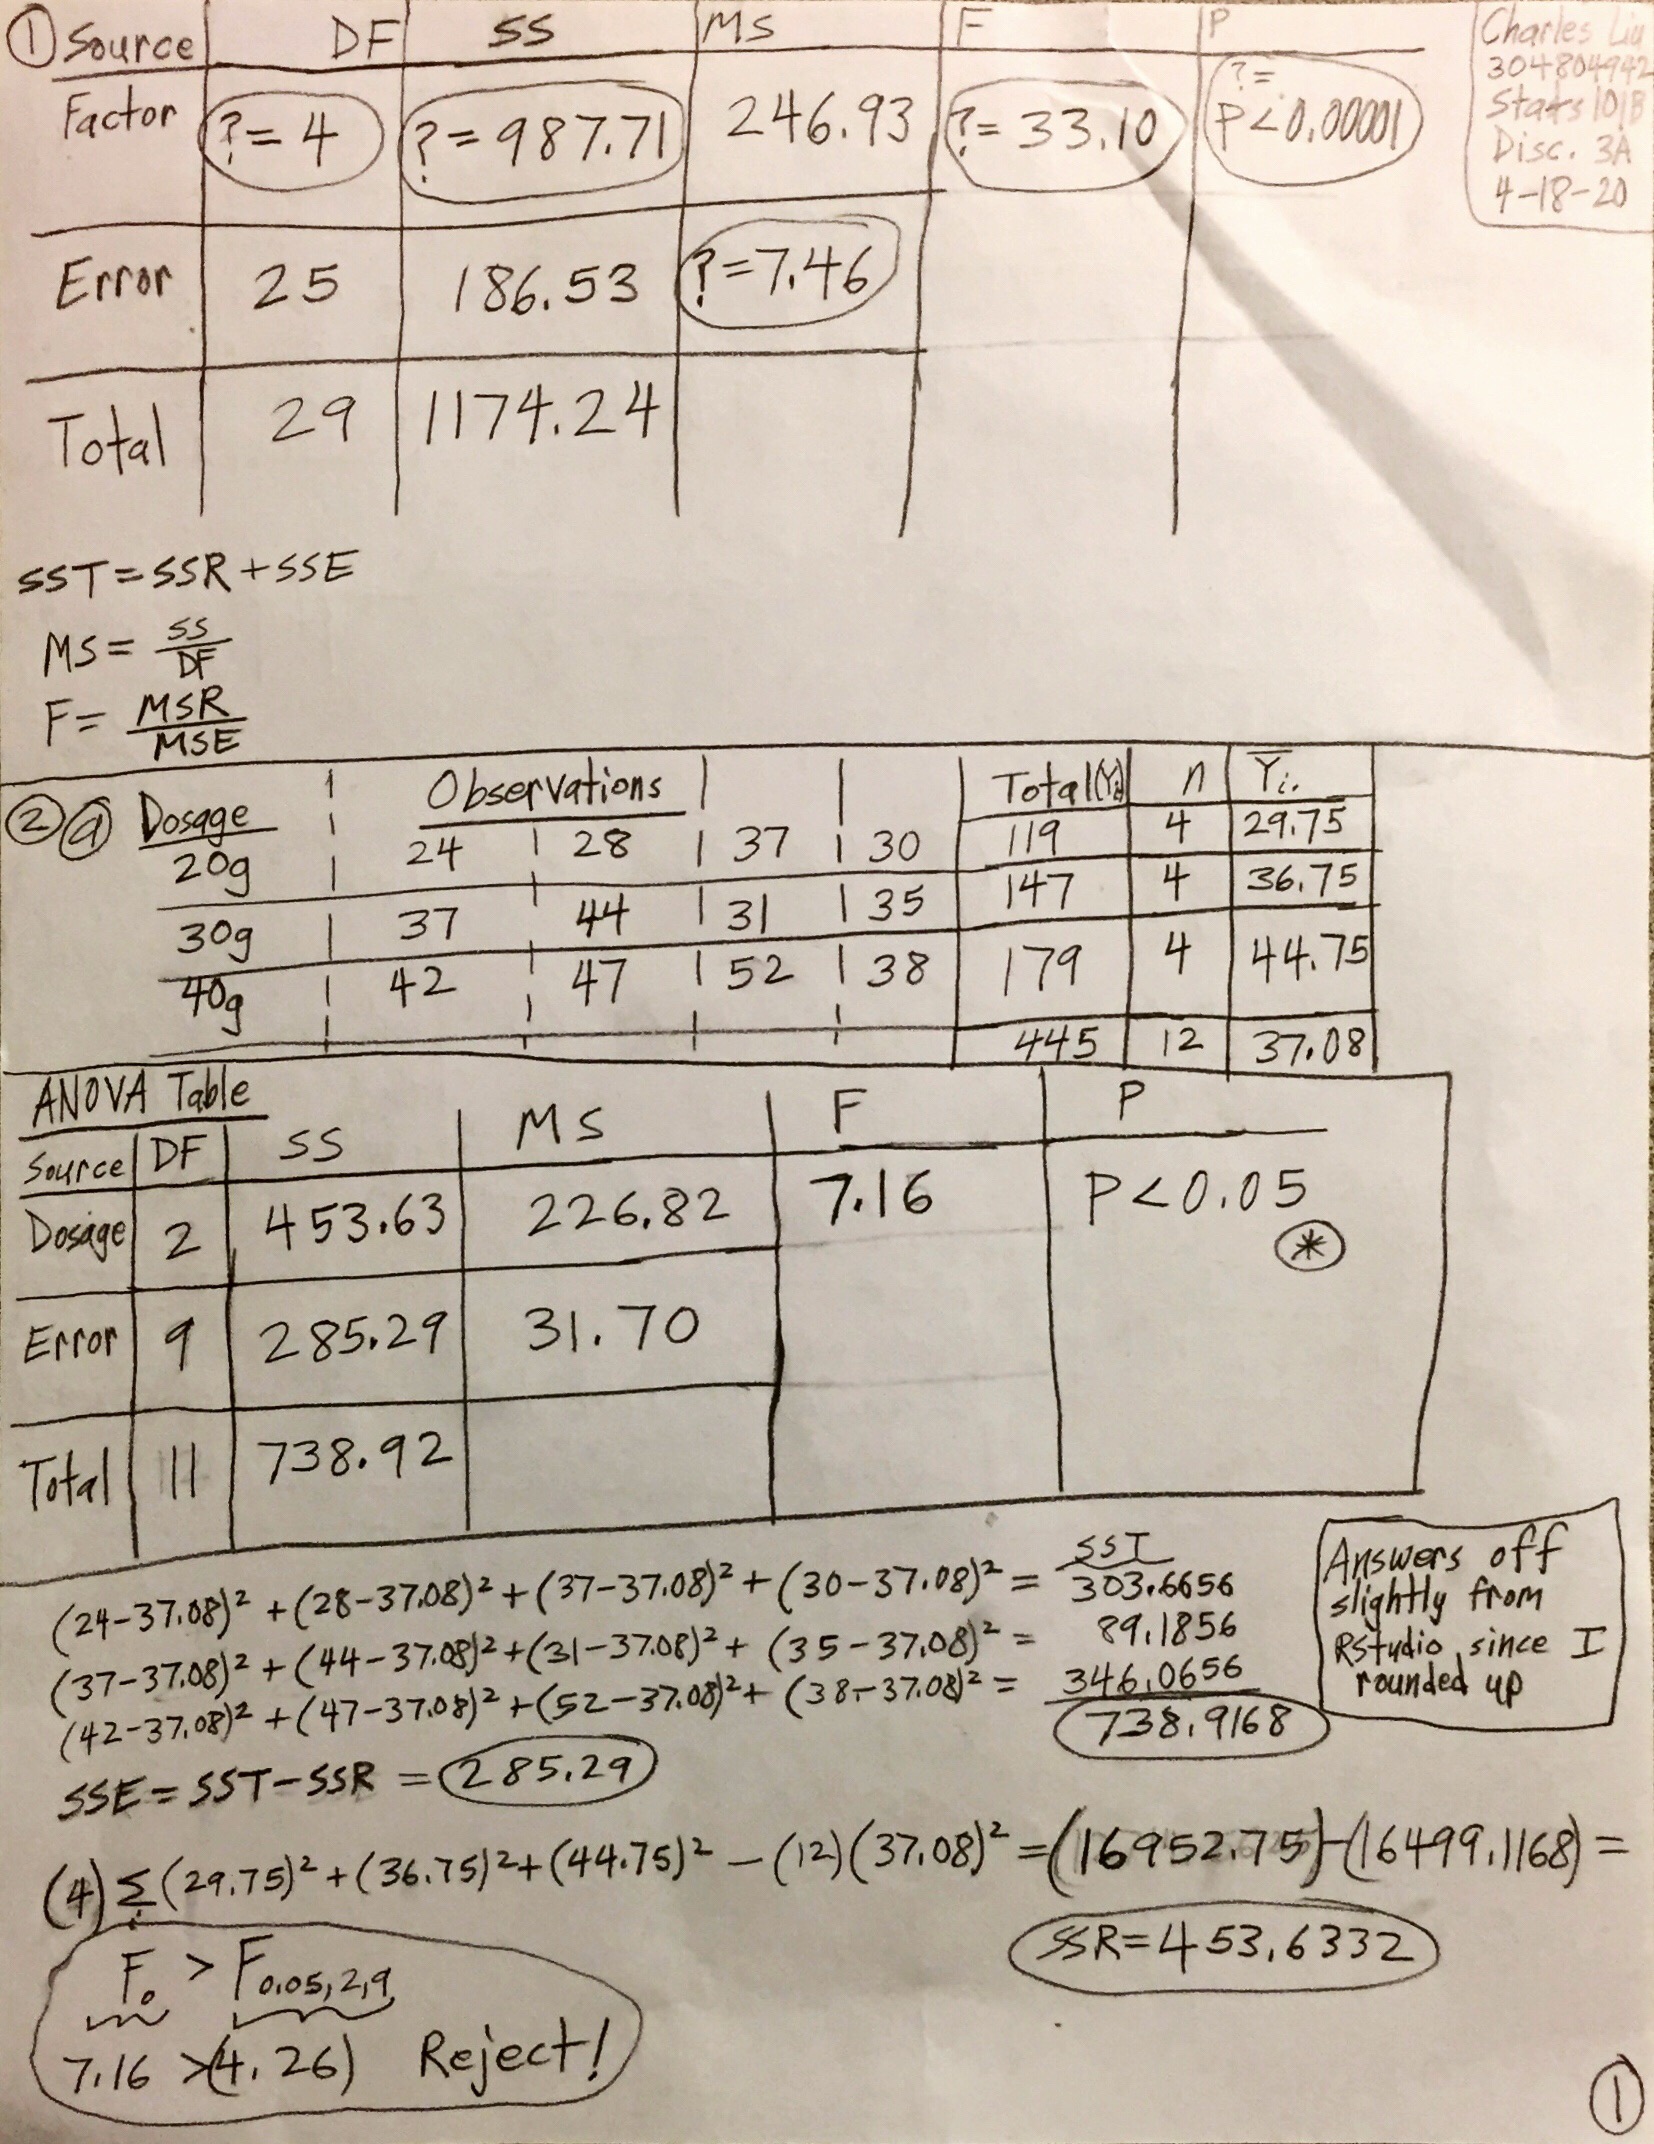 ① Source DF SS MS F P
Factor ?=4 ?=987.71 246.93 ?=33.10 ?= P<0.00001
Error 25 186.53 ?=7.46
Total 29 1174.24
Charles Liu
304804942
Stats 101B
Disc. 3A
4-18-20
SST=SSR+SSE
MS= SS/DF
F= MSR/MSE
② ⓐ Dosage Observations Total(Yi.) n Ȳi.
20g 24 28 37 30 119 4 29.75
30g 37 44 31 35 147 4 36.75
40g 42 47 52 38 179 4 44.75
445 12 37.08
ANOVA Table
Source DF SS MS F P
Dosage 2 453.63 226.82 7.16 P<0.05
*
Error 9 285.29 31.70
Total 11 738.92
SST
(24-37.08)² +(28-37.08)² +(37-37.08)² +(30-37.08)² = 303.6656
(37-37.08)² +(44-37.08)² +(31-37.08)² + (35-37.08)² = 89.1856
(42-37.08)² +(47-37.08)² +(52-37.08)² + (38-37.08)² = 346.0656
738.9168
Answers off
slightly from
RStudio since I
rounded up
SSE = SST-SSR = 285.29
(4) Σi (29.75)² +(36.75)² +(44.75)² - (12)(37.08)² =(16952.75)-(16499.1168) =
SSR=453.6332
F₀ > F0.05,2,9
7.16 >(4.26) Reject!
①